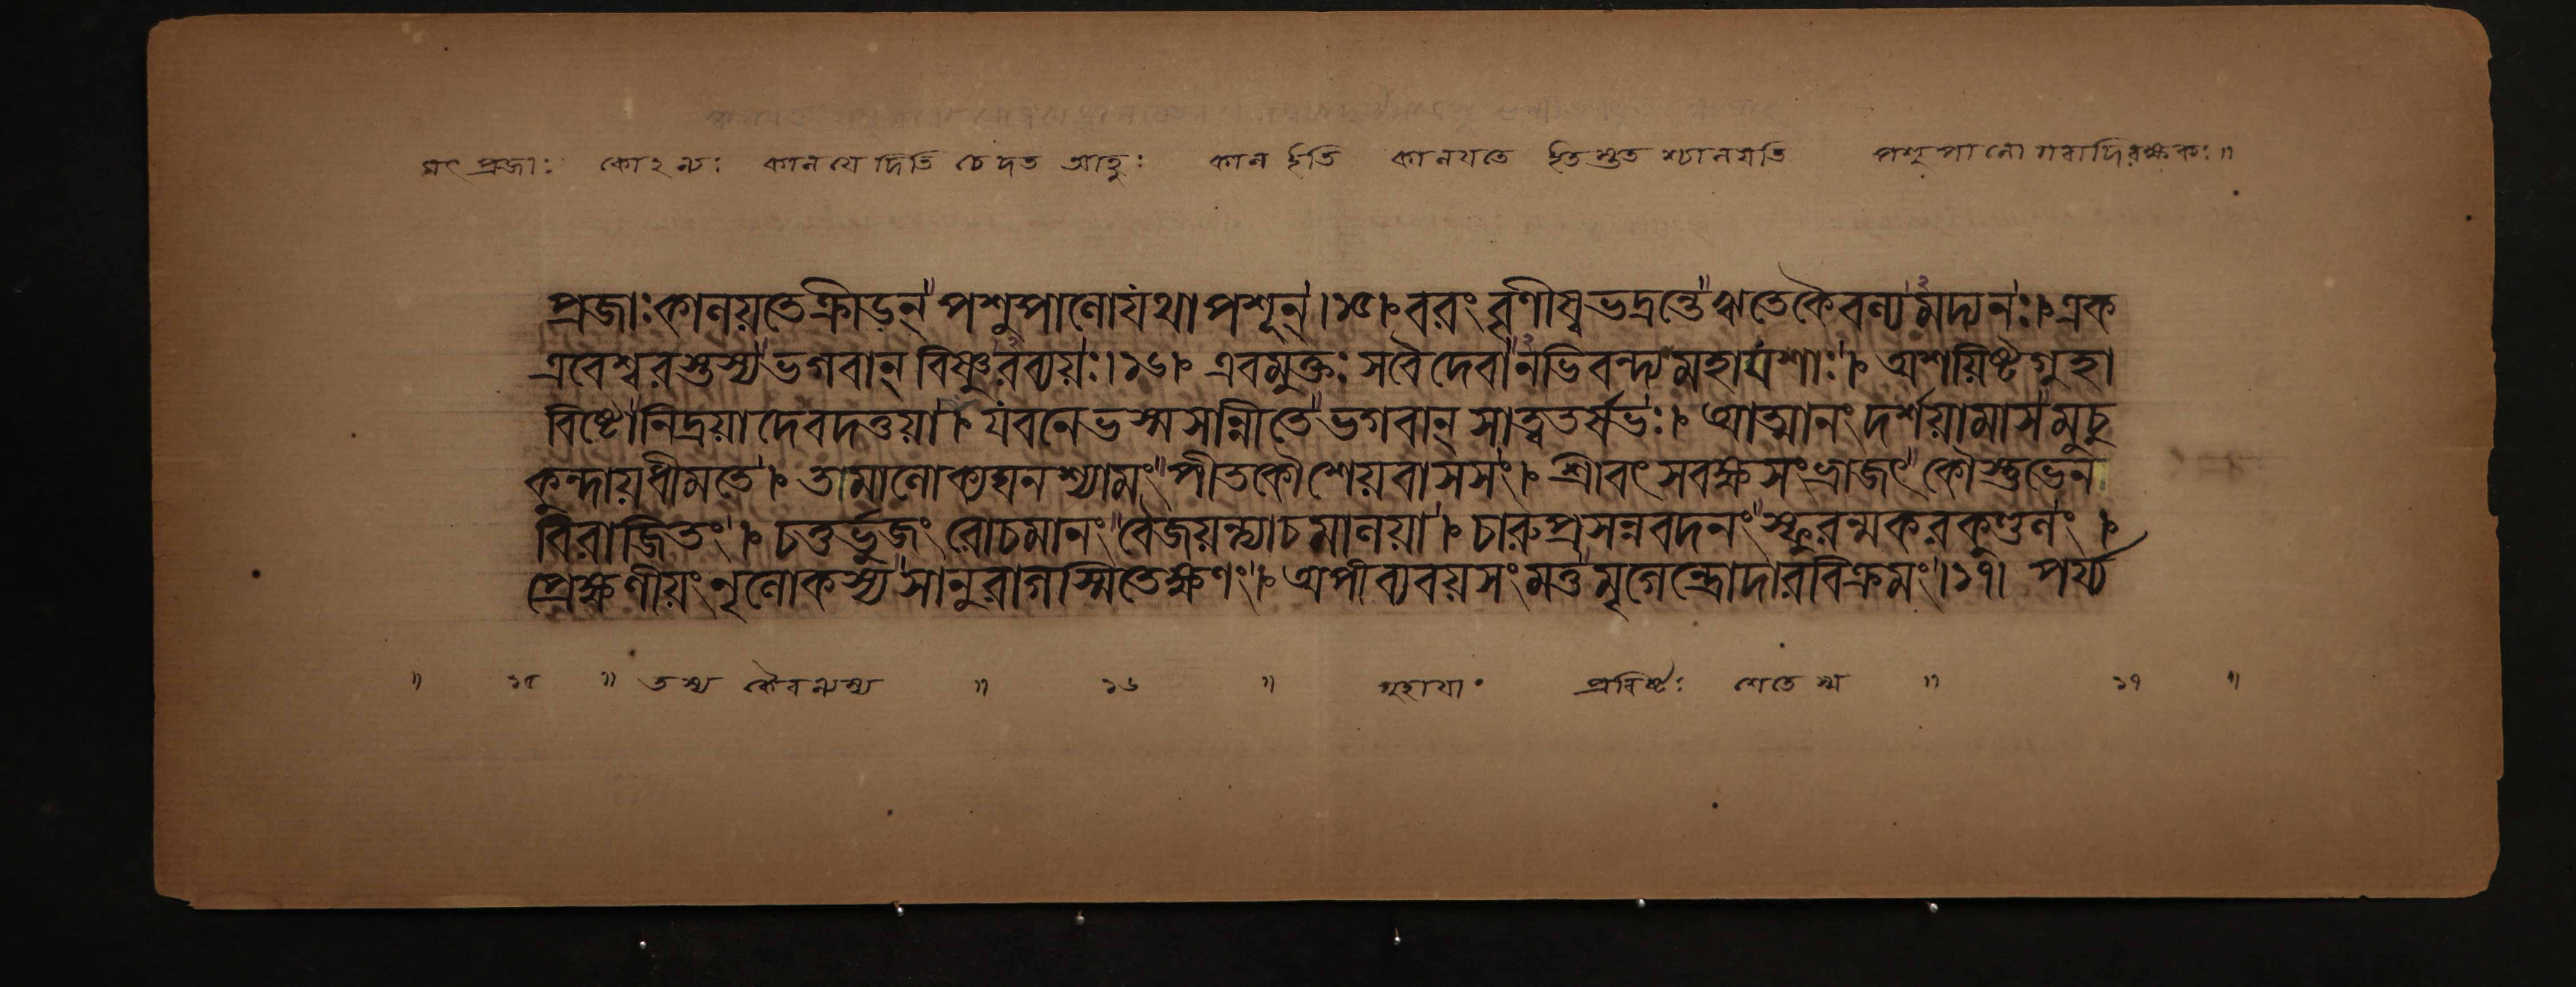 যৎ প্রজাঃ কোঽন্যঃ কালযেদিতি চেদত আহুঃ কাল ইতি কালযতে ইতস্ততশ্চালযতি পশুপালো গবাদিরক্ষকঃ॥
প্রজাঃ কালয়তেক্রীড়ন্ পশুপালোযথাপশূন্।১৫। বরং বৃণীষ্বভদ্রন্তেঋতেকৈবল্যমদ্যনঃ। এক
এবেশ্বরস্তস্যভগবান্ বিষ্ণুরব্যয়ঃ।১৬। এবমুক্তঃসবৈদেবানভিবন্দ্যমহাযশাঃ। অশয়িষ্টগুহা
বিষ্টোনিদ্রয়াদেবদত্তয়া। যবনেভস্মসান্নীতেভগবান্ সাত্বতর্ষভঃ। আত্মানংদর্শয়ামাসমুচু
কুন্দায়ধীমতে। তামালোক্যঘনশ্যামংপীতকৌশেয়বাসসং। শ্রীবৎসবক্ষসংভ্রাজৎকৌস্তুভেন
বিরাজিতং। চতুর্ভুজংরোচমানংবৈজয়ন্ত্যাচমালয়া। চারুপ্রসন্নবদনংস্ফুরন্মকরকুণ্ডলং।
প্রেক্ষণীয়ংনৃলোকস্যসানুরাগস্মিতেক্ষণং। অপীব্যবয়সংমত্তমৃগেন্দ্রোদারবিক্রমং।১৭। পর্য্য
॥ ১৫ ॥ তস্য কৈবল্যস্য ॥ ১৬ ॥ গুহাযাং প্রবিষ্টঃ শেতে স্ম ॥ ১৭ ॥